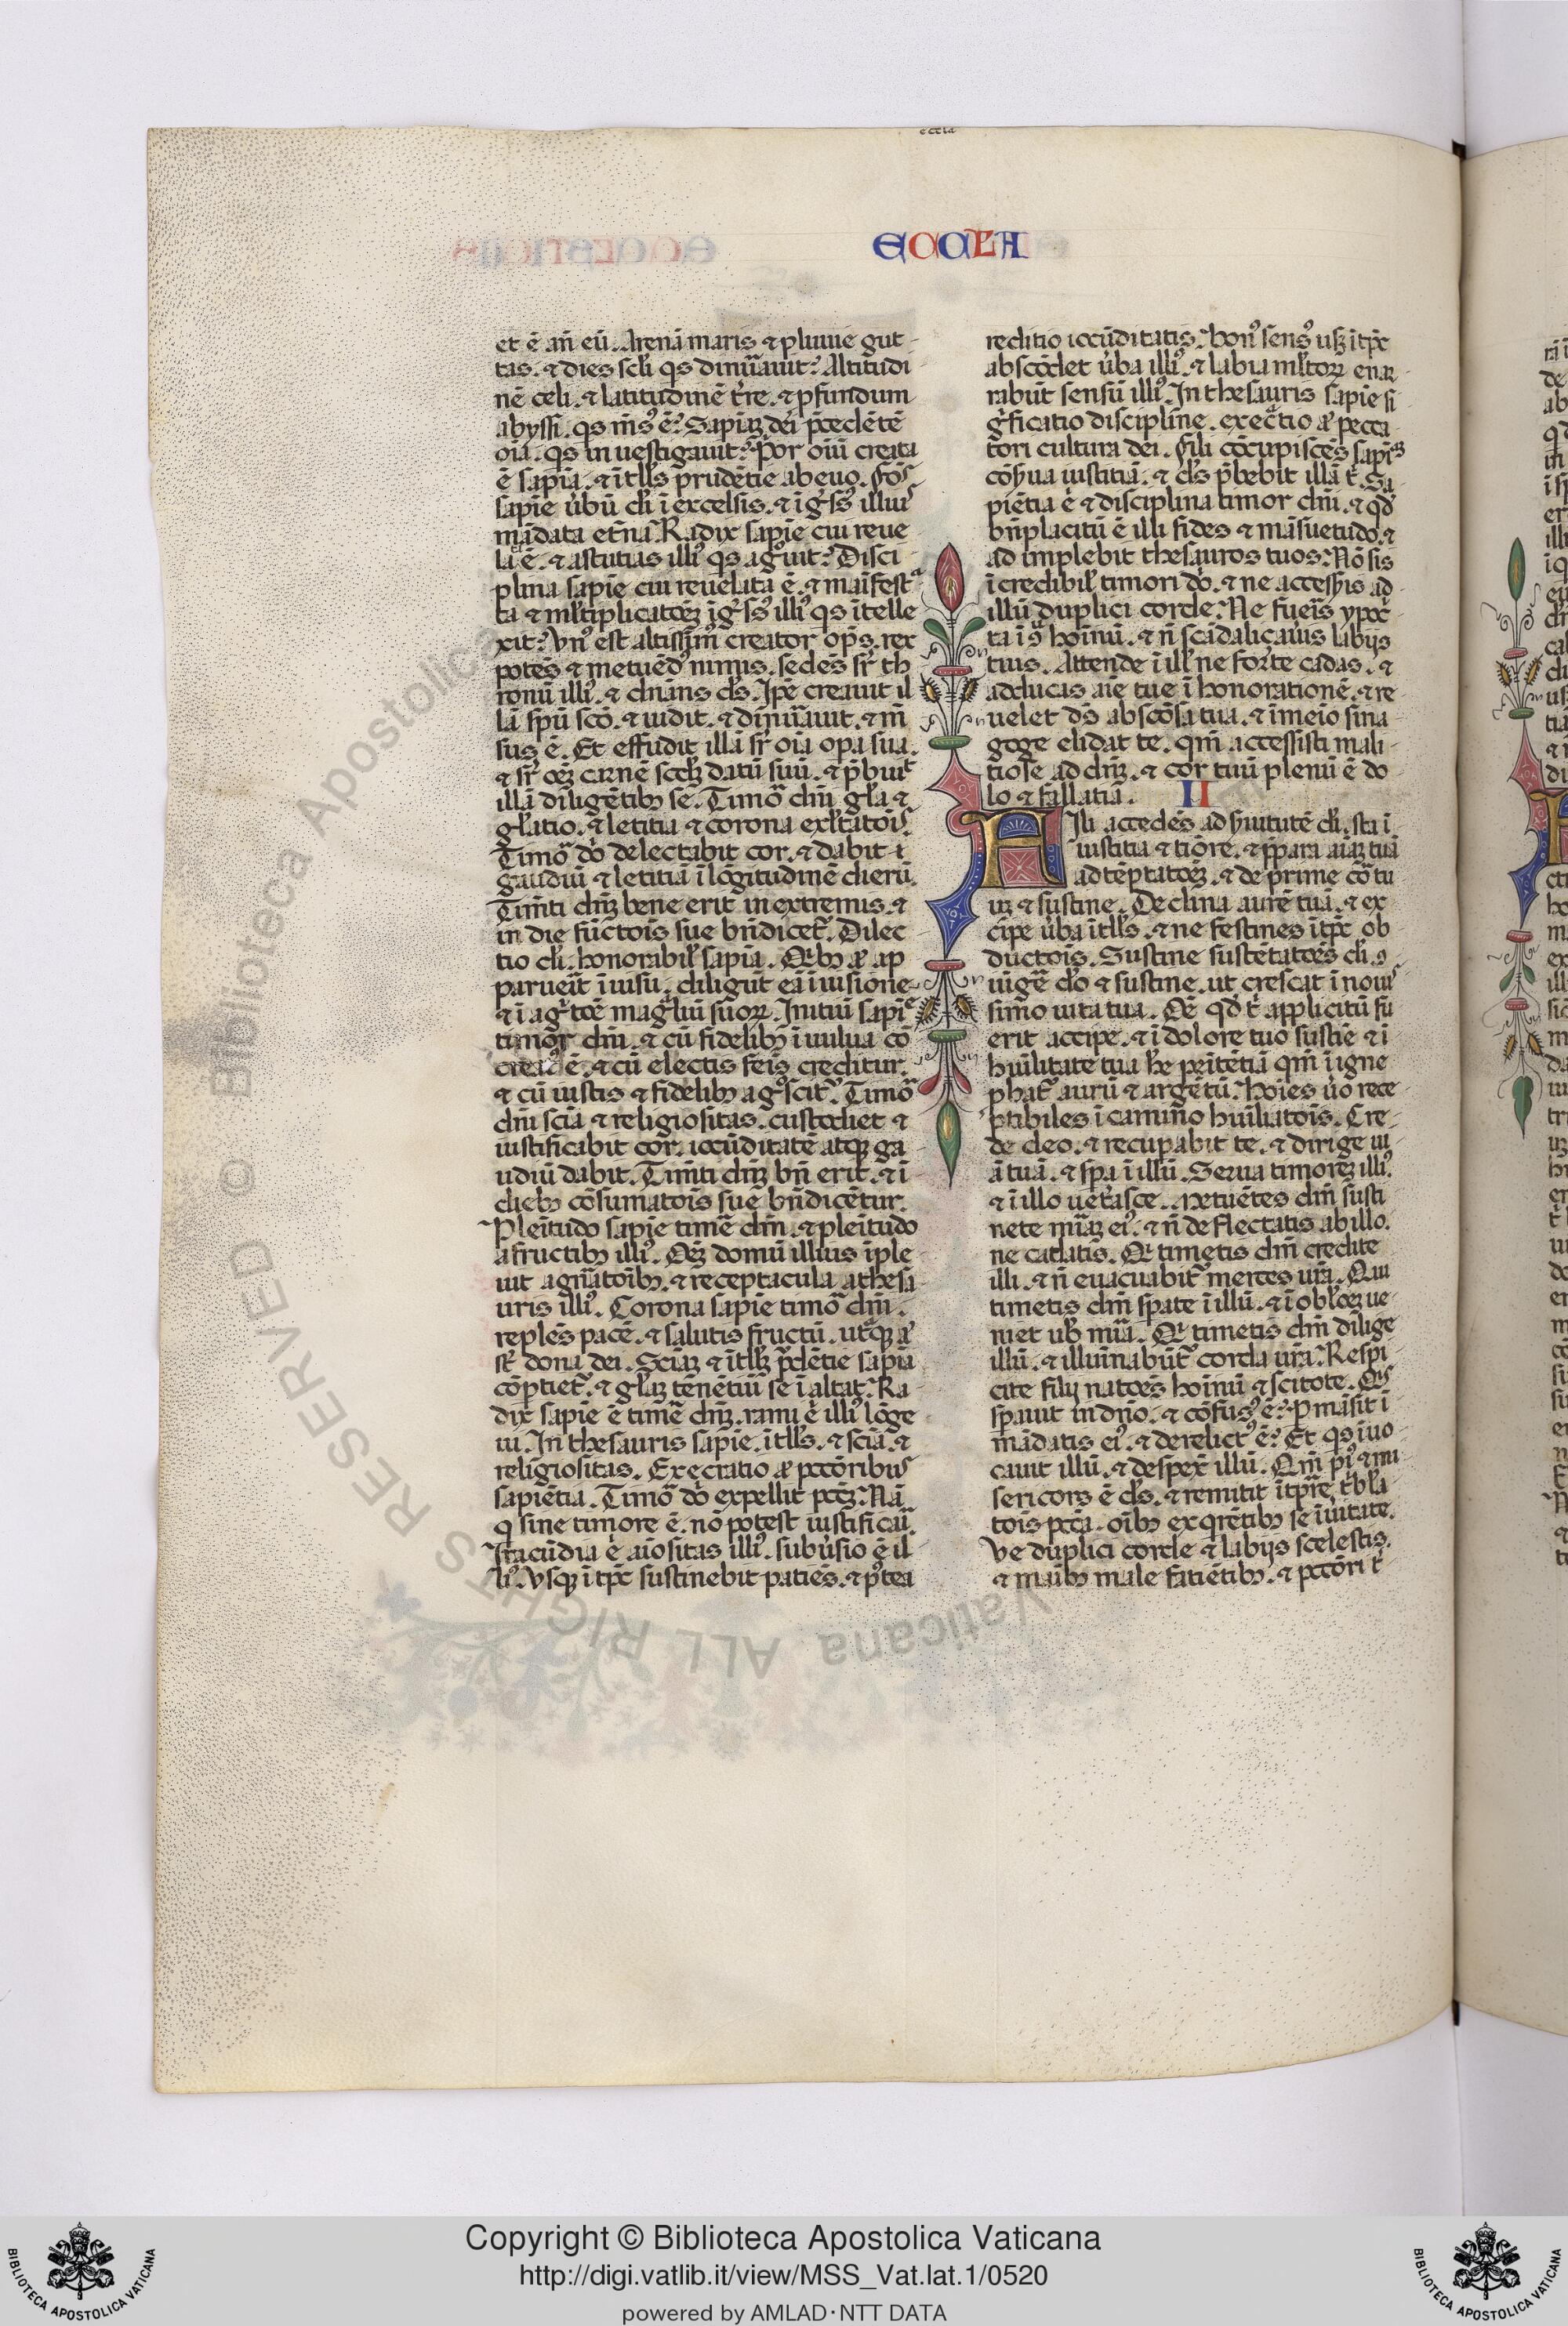 eccla
ECCLA
et ē añ eū. Arenā maris ⁊ pluuie gut
tas. ⁊ dies scl̃i q̃s dinũauit? Altitudi
nē celi. ⁊ latitudinē t̃re. ⁊ ꝓfundum
abyssi. q̃s m̃sꝰ ē? Sapiaʒ dei p̃cedētē
oīa. q̃s inuestigauit? P̃or oīū creata
ē sapīa. ⁊ ĩtllꝰs prudētie ab euo. Fōs
sapie ũbū dĩ ĩ excelsis. ⁊ ĩg̃ssꝰ illiuꝰ
mādata et̃na. Radix sapīe cui reue
lā ē. ⁊ astutias illiꝰ q̃s ag̃uit? Disci
plina sapīe cui reuelata ē. ⁊ maĩfest
ta ⁊ ml̃tiplicatōeʒ ĩg̃ssꝰ illiꝰ q̃s ĩtelle
xit? Vnꝰ est altissimꝰ creator op̃s. rex
potēs ⁊ metuēdꝰ nimis. sedēs sr̃ th
ronū illiꝰ. ⁊ dñans d̃s. Ip̃e creauit il
lā sp̃ū scō. ⁊ uidit. ⁊ dinũauit. ⁊ m̃
sus ē. Et effudit illā sr̃ oīa op̃a sua.
⁊ sr̃ oēʒ carnē scd̃ʒ datū suū. ⁊ p̃buit
illā diligētibꝫ se. Timõ dñi gl̃a ⁊
gl̃atio. ⁊ letitia ⁊ corona exl̃tatōis.
Timõ dõ delectabit cor. ⁊ dabit ĩ
gaudiū ⁊ letitiā ĩ lōgitudinē dierū.
Tim̃ti dñʒ bene erit in extremis. ⁊
in die fūctōis sue bñdicet̃. Dilec
tio dĩ. honorabil̃ sapīa. Qĩbꝫ aũ ap
paruerĩt ĩ uisu. diligūt eā ĩ uisione
⁊ ĩ ag̃tōe mag̃liū suoꝝ. Initiū sapĩe
timor dñi. ⁊ cū fidelibꝫ ĩ uulua cō
creatꝰ ē. ⁊ cū electis feĩs creditur.
⁊ cū iustis ⁊ fidelibꝫ ag̃scit̃. Timõ
dñi sciā ⁊ religiositas. custodiet ⁊
iustificabit cor. iocūditatē atqꝫ ga
udiū dabit. Tim̃ti dñʒ bñ erit. ⁊ ĩ
diebꝫ cōsumatōis sue bñdicētur.
Pleĩtudo sapīe timẽ dñi. ⁊ pleĩtudo
a fructibꝫ illiꝰ. Oēʒ domū illius ĩple
uit agñatōibꝫ. ⁊ receptacula a thesã
uris illiꝰ. Corona sapīe timõ dñi.
replēs pacē. ⁊ salutis fructū. utqꝫ aũ
st̃ dona dei. Sciāʒ ⁊ ĩtllʒ p̃dētie sapīa
cōptiet̃. ⁊ gl̃aʒ tēnētiũ se ĩ altat̃. Ra
dix sapīe ē timẽ dñʒ. rami ē illiꝰ lōge
ui. In thesauris sapīe. ĩtllꝰs. ⁊ sciā. ⁊
religiositas. Execratio aũ pctōribuꝰ
sapiētia. Timõ dõ expellit pctʒ. Nā
q̃ sine timore ē. nō potest iustificaĩ.
Iracūdia ē aĩositas illiꝰ. subũsio ē il
liꝰ. Vsqꝫ ĩ tp̃ꝰ sustinebit patiēs. ⁊ p̃tea
reditio iocūditatis. Bonꝰ sensꝰ usꝫ ĩ tp̃ꝰ
abscōdet ũba illiꝰ. ⁊ labia ml̃toꝝ enar
rabūt sensū illiꝰ. In thesauris sapīe si
g̃ficatio discipline. exec̃tio aũ pecca
tori cultura dei. Fili cōcupiscēs sapĩaʒ
cōs̃ua iustitiā. ⁊ d̃s p̃bebit illā t̃. Sa
piētia ē ⁊ disciplina timor dñi. ⁊ qd̃
bñplacitū ē illi fides ⁊ māsuetudo. ⁊
adimplebit thesauros tuos. Nō sis
ĩcredibil̃ timori dõ. ⁊ ne access̃is ad
illū duplici corde. Ne fueĩs ypoc̃
ta ĩ 9̃ hoīnū. ⁊ ñ scādaliçaũis labijs
tuis. Attende ĩ ill̃ ne forte cadas. ⁊
adducas aīe tue ĩhonorationē. ⁊ re
uelet dõs abscōsa tua. ⁊ ĩ meīo sina
goge elidat te. qm̃ accessisti mali
tiose ad dñʒ. ⁊ cor tuū plenū ē do
lo ⁊ fallatiā. II
Fili accedēs ad s̃uitutē dĩ. sta ĩ
iustitia ⁊ tiōre. ⁊ p̃para aīaʒ tuā
ad tēptatōeʒ. ⁊ deprime cõ tu
uʒ ⁊ sustine. Declina aurē tuā. ⁊ ex
cipe ũba ĩtllꝰs. ⁊ ne festines ĩ tp̃ꝰ ob
ductōis. Sustine sustētatōēs dĩ. 9
iũgẽ dõ ⁊ sustine. ut crescat ĩ nouiꝰ
simo uita tua. Oē qd̃ t̃ applicitū fu
erit accipe. ⁊ ĩ dolore tuo sustīe ⁊ ĩ
huĩlitate tua hẽ peñtētiā qm̃ ĩ igne
ꝓbat̃ aurū ⁊ argētū. Hoīes ũo rece
ptibiles ĩ camino huĩliatōis. Cre
de deo. ⁊ recuꝑabit te. ⁊ dirige ui
ā tuā. ⁊ sp̃a ĩ illū. Serua timoreʒ illiꝰ.
⁊ ĩ illo uet̃asce. Metuētes dñi susti
nete m̃iaʒ eiꝰ. ⁊ ñ deflectatis ab illo.
ne cadatis. Qĩ timetis dñi credite
illi. ⁊ ñ euacuabit̃ merces ur̃a. Qui
timetis dñi sp̃ate ĩ illū. ⁊ ĩ obl̃cōeʒ ue
niet ub̃ m̃ia. Qĩ timetis dñi dilige
illū. ⁊ illuĩnabūt̃ corda ur̃a. Respi
cite filij natōēs hoīnū ⁊ scitote. Qĩs
sp̃auit in dño. ⁊ cōfusꝰ ē? Ꝑmāsit ĩ
mādatis eiꝰ. ⁊ derelictꝰ ē? Et q̃s ĩuo
cauit illū. ⁊ despex̃ illū. Qm̃ piꝰ ⁊ mi
sericors ē d̃s. ⁊ remittit ĩ tp̃re t̃bl̃a
tōis pctā. oībꝫ exq̃rētibꝫ se ĩ ũitate.
Ve duplici corde ⁊ labijs scelestis.
⁊ maĩbꝫ male fatiētibꝫ. ⁊ pctōri t̃
© Biblioteca Apostolica Vaticana ALL RIGHTS RESERVED
Copyright © Biblioteca Apostolica Vaticana
http://digi.vatlib.it/view/MSS_Vat.lat.1/0520
powered by AMLAD·NTT DATA
BIBLIOTECA APOSTOLICA VATICANA
BIBLIOTECA APOSTOLICA VATICANA